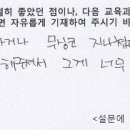 별히 좋았던 점이나, 다음 교육과
면 자유롭게 기재하여 주시기 바
거나 무심코 지나
해주셔서 그게 너무
<설문에